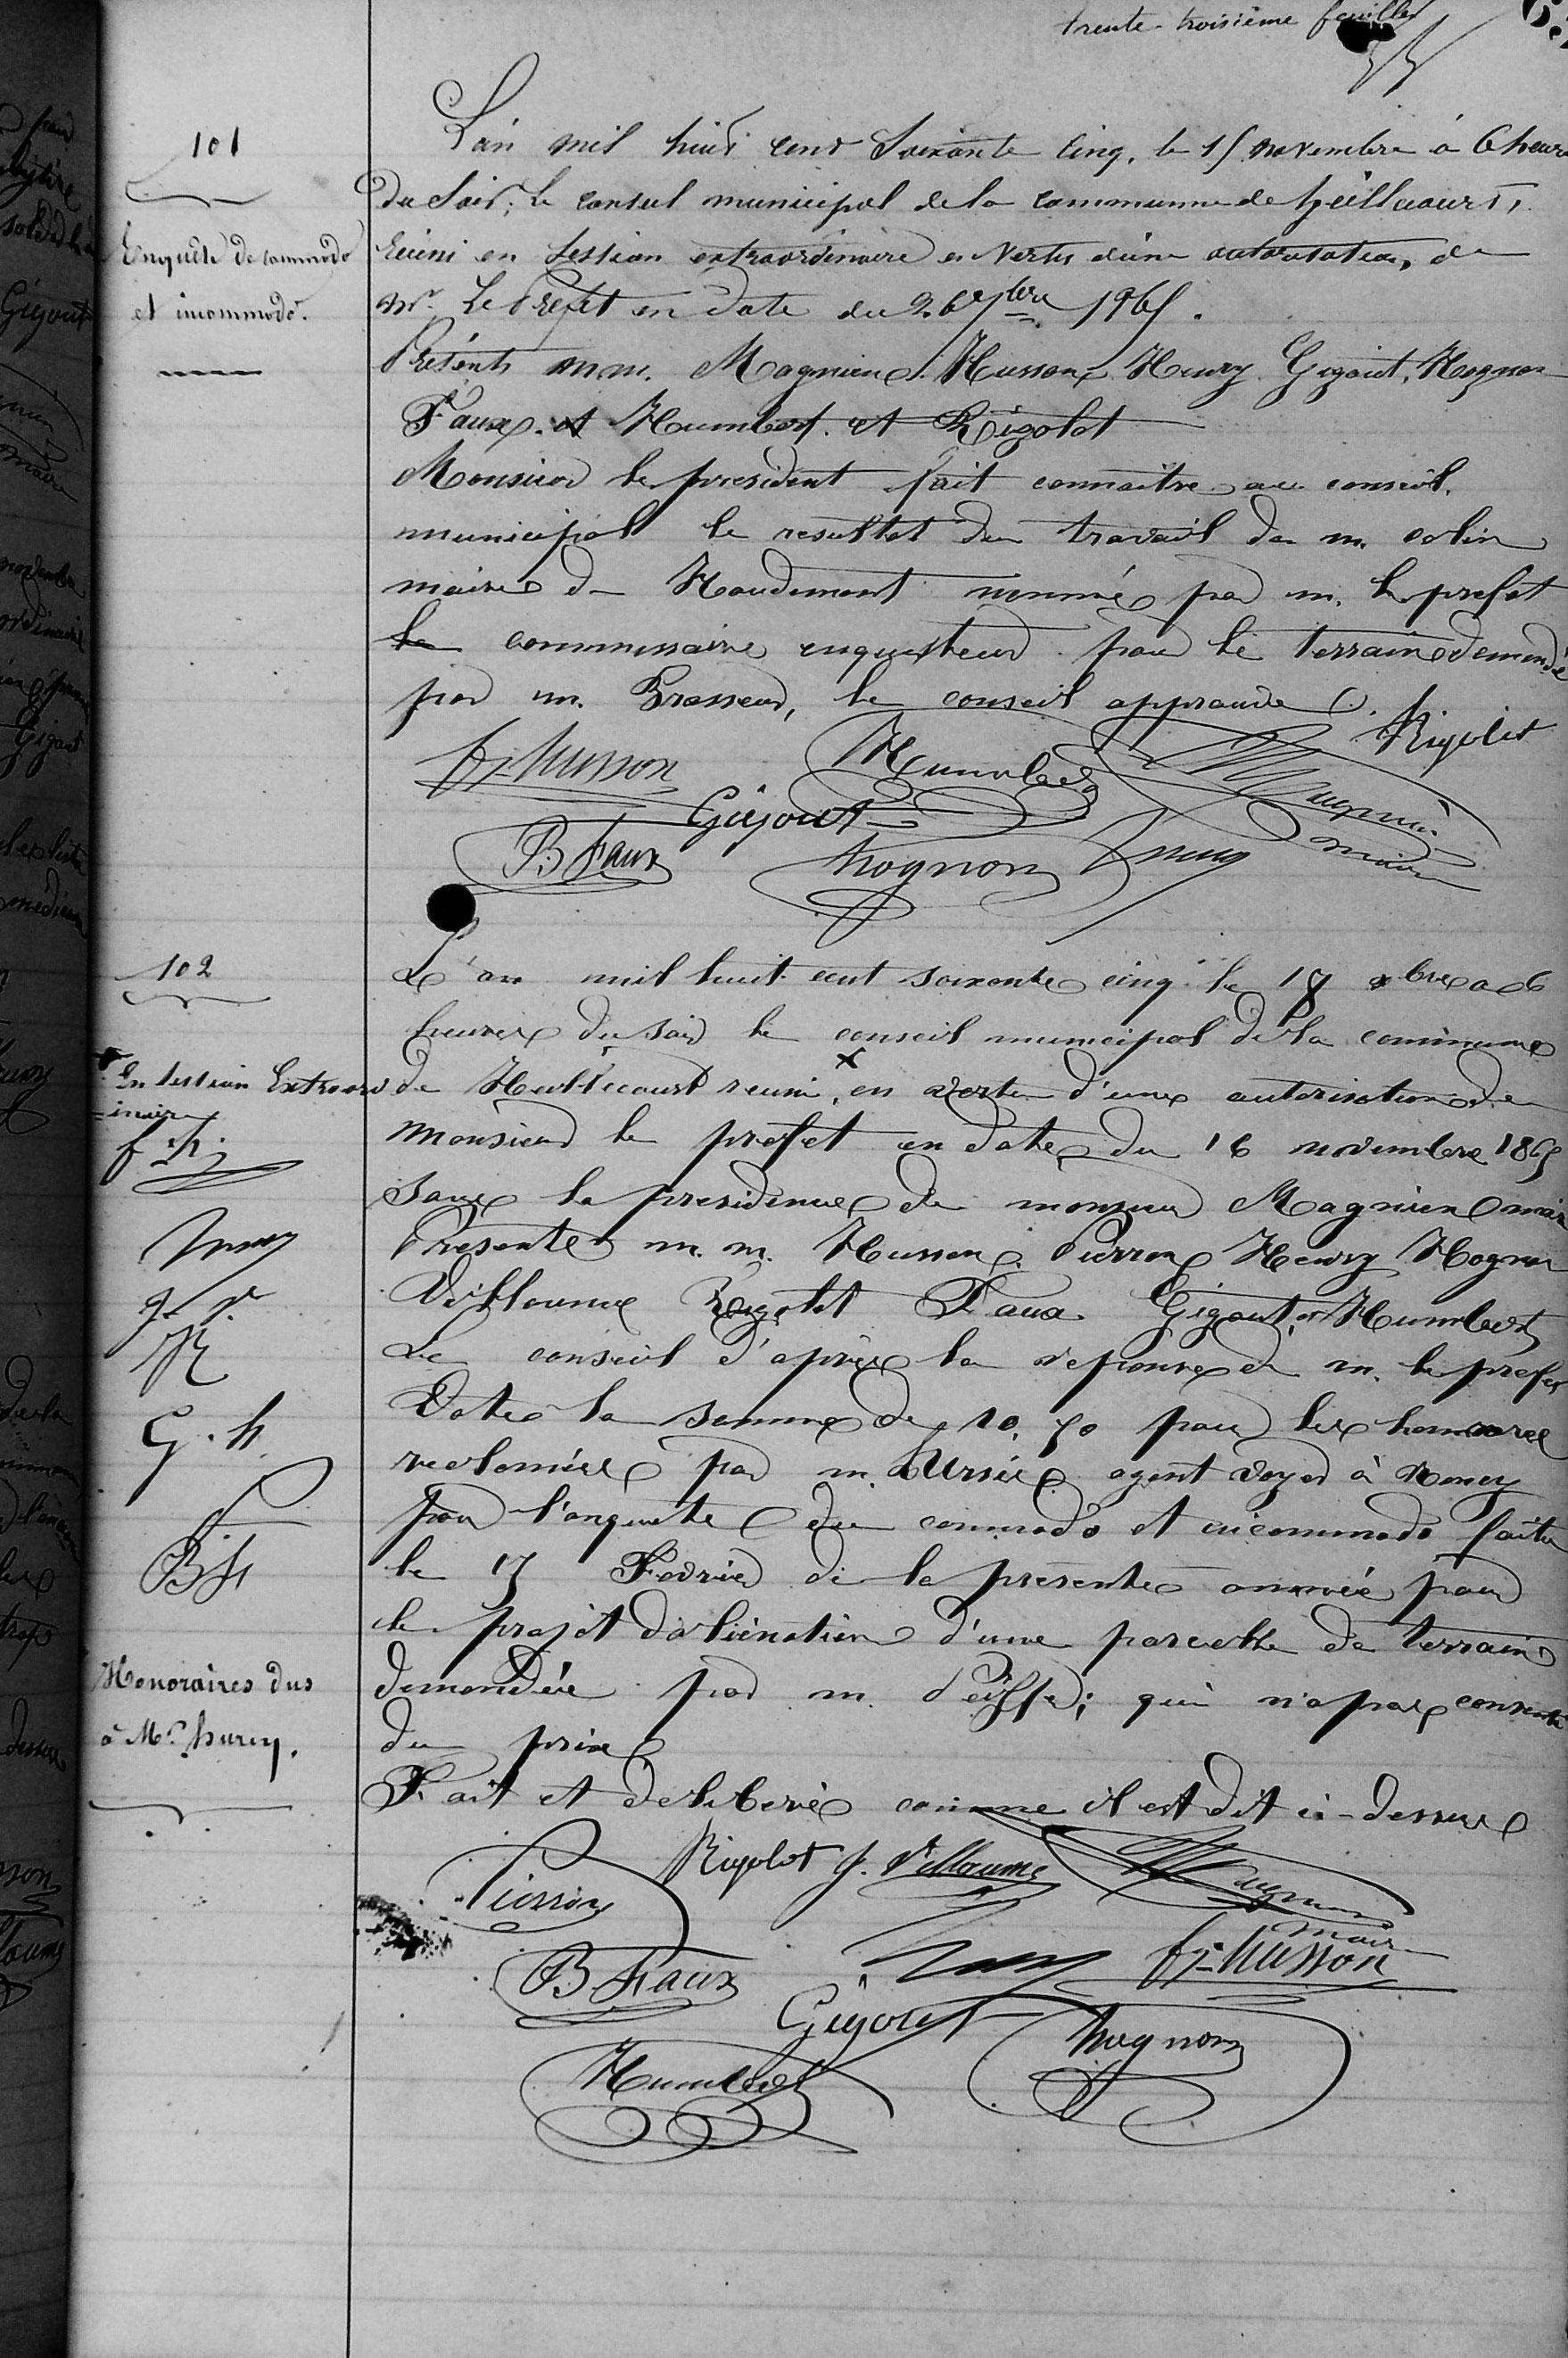 trente-troisième feuillet
101
Enquête de commodo
et incommodo.
L'an mil huit cent soixante cinq, le 15 novembre à 6 heures
du soir, le conseil municipal de la commune de heillecourt,
Réuni en session extraordinaire en vertu d'une autorisation, de
Mr. Le Préfet en date du 1865.
Présents m.m. Magnien, Husson, Henry Gigout, Hognon
Faux, et Humbert et Rigolot
Monsieur le president fait connaitre au conseil
municipal le resultat du travail de m. colin
maire de Houdemont nommé par m. le prefet
le commissaire enquesteur pour le terrain demandé
par m. Brasseur, le conseil approuve.
Rigolot
fx husson Humbert Magnien
Gigout maire
B Faux hognon Henry
102
L'an mil huit cent soixante cinq le 18 xbre a 6
heures du soir le conseil municipal de la commune
de Heillecourt reuni, x en vertu d'une autorisation de
En session Extraord
inaire
monsieur le prefet en date du 16 novembre 1865
f. h.
sous la presidence de monsieur Magnien mair
Henry
Presente m. m. Husson Pierron Henry Hognon
J. V.
Villaume Rigolot Faux Gigout, et Humbert
R
Le conseil d'après la reponse de m. le prefet
G. h
Vote la somme de 10,70 pour les honoraires
reclamées par m. hursie agent voyer à Nancy
pour l'anquete du commodo et incommodo faite
B F
le 17 Fevrier de la presente année pour
le projet d'aliénation d'une parcelle de terrain
Honoraires dus
demandée par m. d'eiffe; qui n'a pas consenti
à Mr. hurcy.
du prix
Fait et deliberé comme il est dit ci-dessus
Pierron Rigolot J. Villaume Magnien
maire
B Faux Henry fx husson
Gigout hognon
Humbert